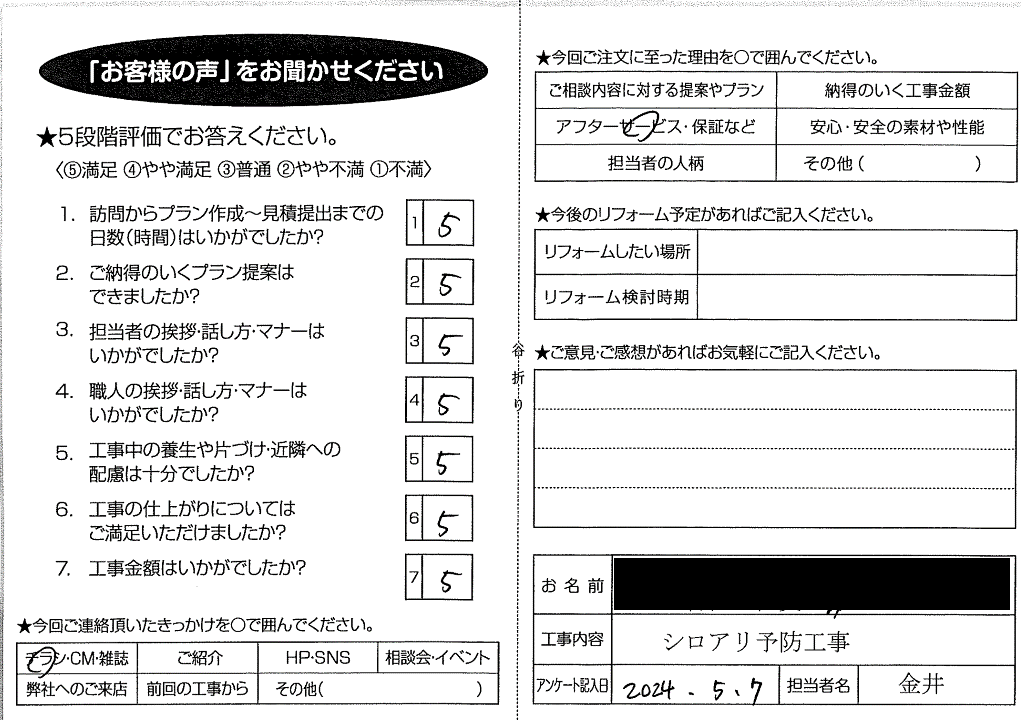 「お客様の声」をお聞かせください
★5段階評価でお答えください。
〈⑤満足 ④やや満足 ③普通 ②やや不満 ①不満〉
1. 訪問からプラン作成〜見積提出までの
日数(時間)はいかがでしたか?
1 5
2. ご納得のいくプラン提案は
できましたか?
2 5
3. 担当者の挨拶・話し方・マナーは
いかがでしたか?
3 5
4. 職人の挨拶・話し方・マナーは
いかがでしたか?
4 5
5. 工事中の養生や片づけ・近隣への
配慮は十分でしたか?
5 5
6. 工事の仕上がりについては
ご満足いただけましたか?
6 5
7. 工事金額はいかがでしたか?
7 5
★今回ご連絡頂いたきっかけを○で囲んでください。
チラシ・CM・雑誌 ご紹介 HP・SNS 相談会・イベント
弊社へのご来店 前回の工事から その他( )
谷折り
★今回ご注文に至った理由を○で囲んでください。
ご相談内容に対する提案やプラン 納得のいく工事金額
アフターサービス・保証など 安心・安全の素材や性能
担当者の人柄 その他( )
★今後のリフォーム予定があればご記入ください。
リフォームしたい場所
リフォーム検討時期
★ご意見・ご感想があればお気軽にご記入ください。
お名前
工事内容 シロアリ予防工事
アンケート記入日 2024.5.7 担当者名 金井